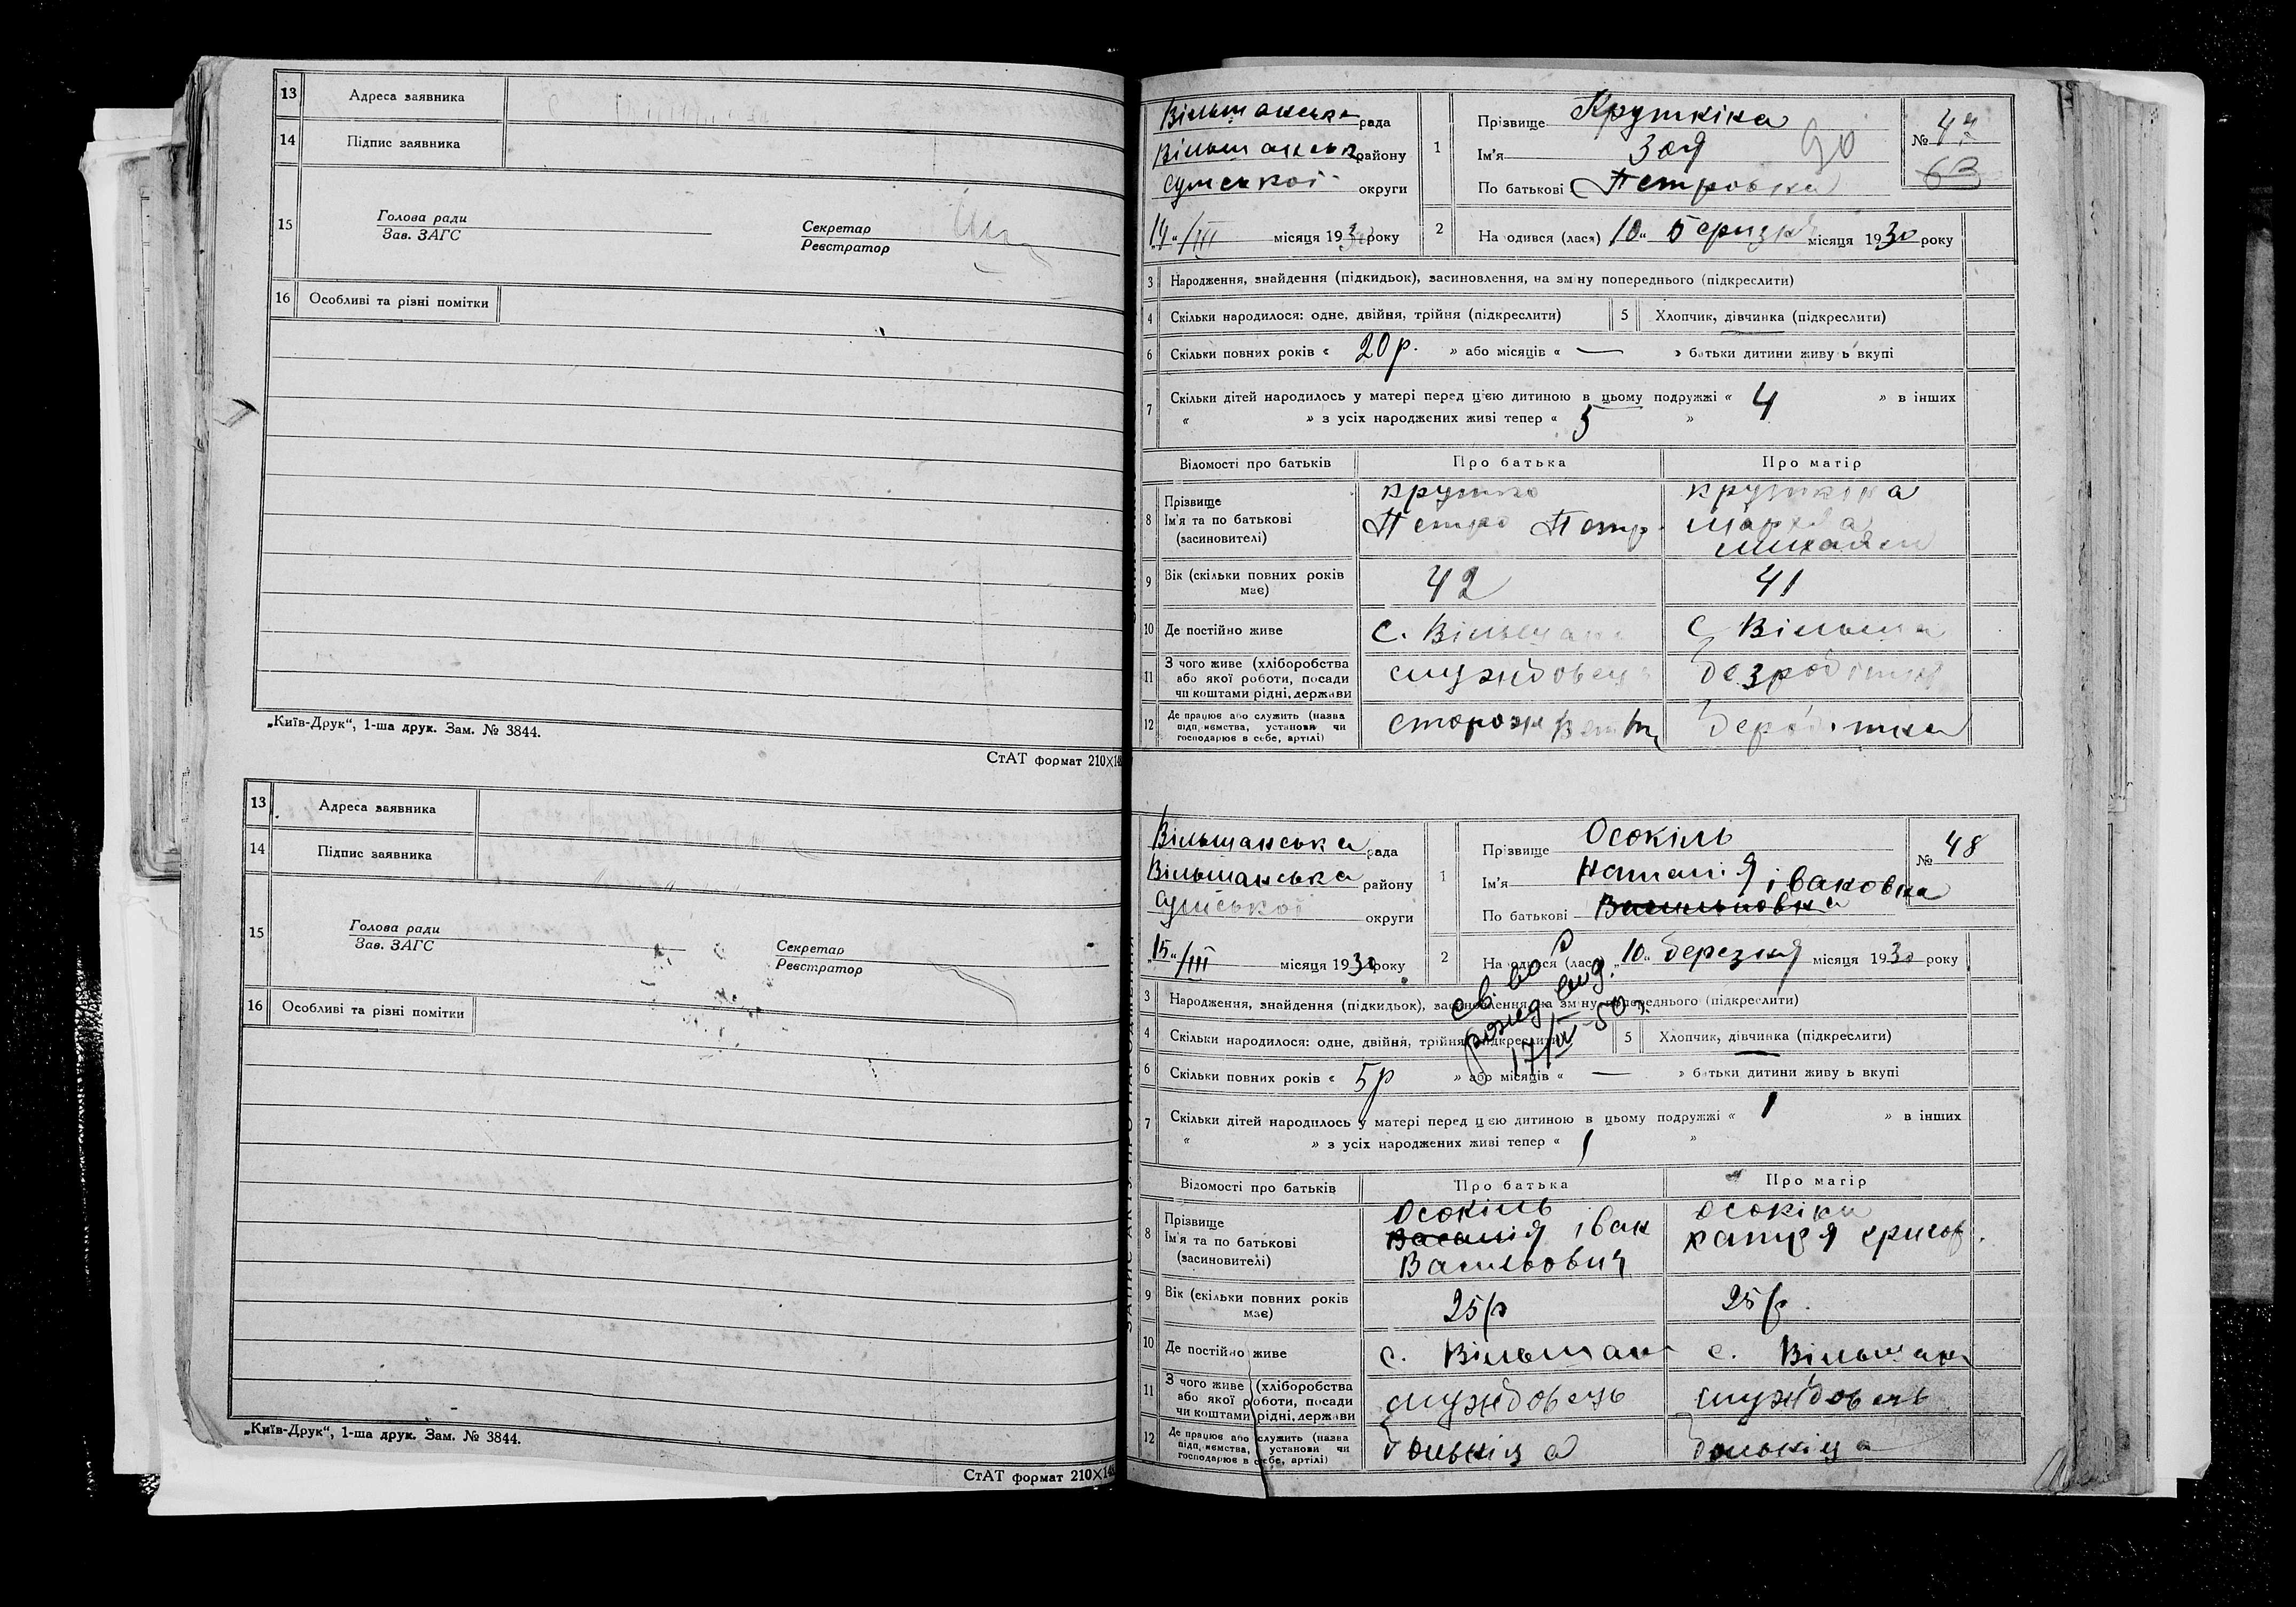 13 Адреса заявника
14 Підпис заявника
15 Голова ради
Зав. ЗАГС
Секретар
Реєстратор
16 Особливі та різні помітки
„Київ-Друк“, 1-ша друк. Зам. № 3844.
СтАТ формат 210×148
13 Адреса заявника
14 Підпис заявника
15 Голова ради
Зав. ЗАГС
Секретар
Реєстратор
16 Особливі та різні помітки
„Київ-Друк“, 1-ша друк. Зам. № 3844.
СтАТ формат 210×148
ЗАПИС АКТУ ПРО НАРОДЖЕННЯ
Вільшанська рада
Вільшанськ району
Сумської округи
14 “ /III місяця 1930 року
1 Прізвище Крушкіна
Ім'я Зоя 90
По батькові Петровна
№ 47
63
2 На одився (лася) 10 “ березня місяця 1930 року
3 Народження, знайдення (підкидьок), засиновлення, на зміну попереднього (підкреслити)
4 Скільки народилося: одне, двійня, трійня (підкреслити) 5 Хлопчик, дівчинка (підкреслити)
6 Скільки повних років « 20 р. » або місяців « — » батьки дитини живу ь вкупі
7 Скільки дітей народилось у матері перед цією дитиною в цьому подружжі « 4 » в інших
« » з усіх народжених живі тепер « 5 »
Відомості про батьків Про батька Про матір
8 Прізвище
Ім'я та по батькові
(засиновителі)
Петро Петр.
9 Вік (скільки повних років має) 42 41
10 Де постійно живе с. Вільшан с Вільша
11 З чого живе (хліборобства або якої роботи, посади чи коштами рідні, держави службовець безробітна
12 Де працює або служить (назва підприємства, установи чи господарює в себе, артілі) сторож
Вільшанська рада
Вільшанська району
Сумської округи
„15“ /III місяця 1930 року
1 Прізвище Осокіль
Ім'я Наталія
івановна
По батькові Васильовна
№ 48
2 На одився (лася) „10 “ березня місяця 1930 року
3 Народження, знайдення (підкидьок), засиновлення, на зміну попереднього (підкреслити)
4 Скільки народилося: одне, двійня, трійня (підкреслити) 5 Хлопчик, дівчинка (підкреслити)
св. во о
рожд выд.
17/IV-50 г.
6 Скільки повних років « 5 р » або місяців « — » батьки дитини живу ь вкупі
7 Скільки дітей народилось у матері перед цією дитиною в цьому подружжі « 1 » в інших
« » з усіх народжених живі тепер « 1 »
Відомості про батьків Про батька Про матір
8 Прізвище
Ім'я та по батькові
(засиновителі)
Осокіль
іван
Васильович
9 Вік (скільки повних років має) 25 р 25 р.
10 Де постійно живе с. Вільшан с. Вільшан
11 З чого живе (хліборобства або якої роботи, посади чи коштами рідні, держави службовець службовець
12 Де працює або служить (назва підприємства, установи чи господарює в себе, артілі) больніця больніця